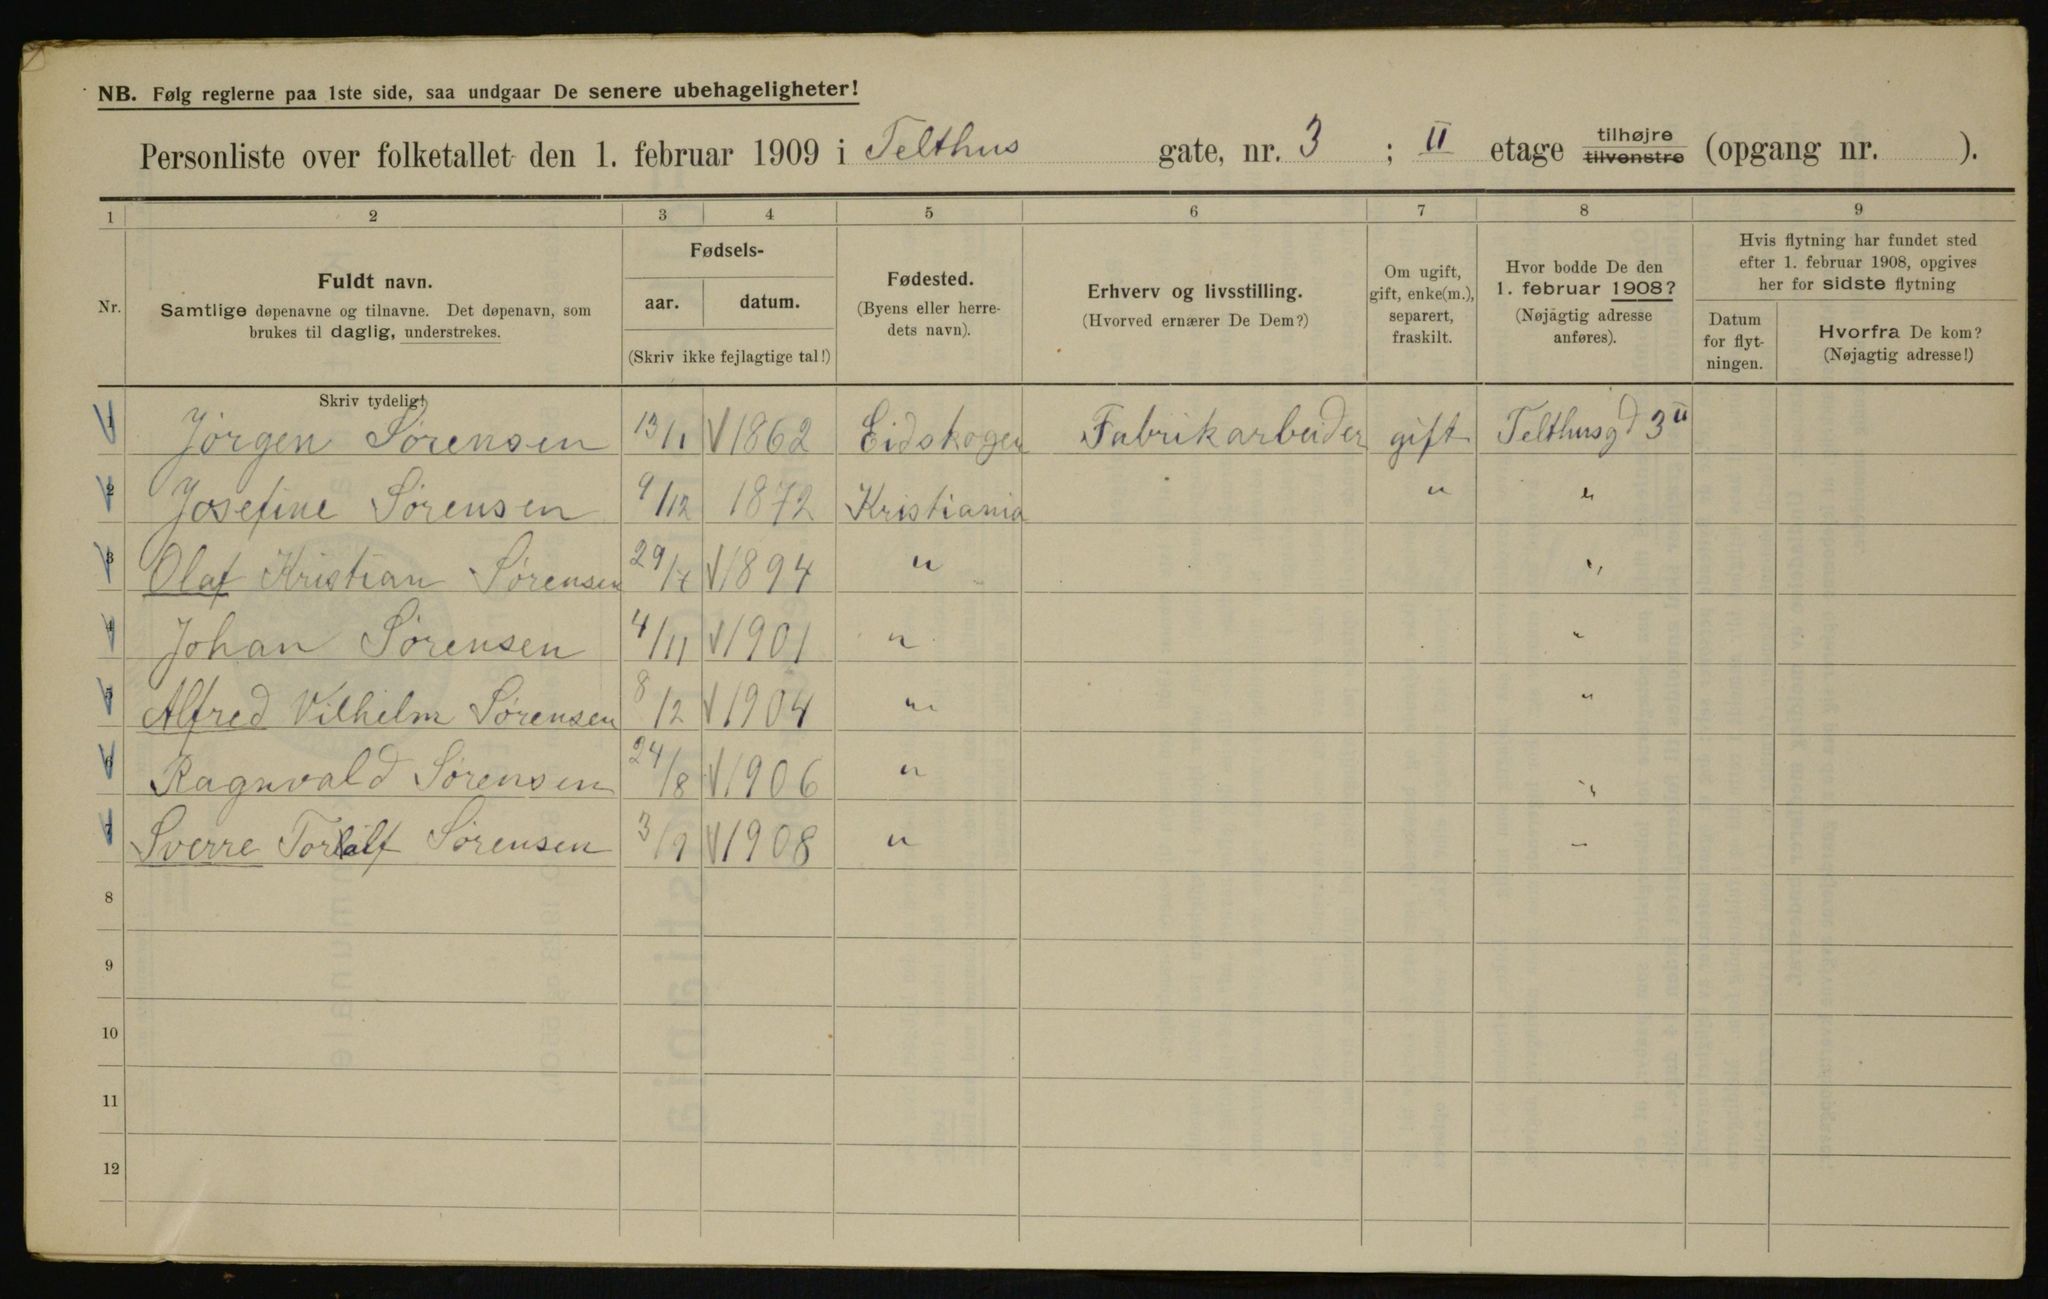 NB. Følg reglerne paa 1ste side, saa undgaar De senere ubehageligheter!
Personliste over folketallet den 1. februar 1909 i Telthus gate, nr. 3 ; II etage tilhøjre tilvenstre (opgang nr. ).
1 2 3 4 5 6 7 8 9
Nr. Fuldt navn. Samtlige døpenavne og tilnavne. Det døpenavn, som brukes til daglig, understrekes.
Fødsels- aar. datum. (Skriv ikke fejlagtige tal!)
Fødested. (Byens eller herredets navn).
Erhverv og livsstilling. (Hvorved ernærer De Dem?)
Om ugift, gift, enke(m.), separert, fraskilt.
Hvor bodde De den 1. februar 1908? (Nøjagtig adresse anføres).
Hvis flytning har fundet sted efter 1. februar 1908, opgives her for sidste flytning
Datum for flytningen.
Hvorfra De kom? (Nøjagtig adresse!)
Skriv tydelig!
1 Jørgen Sørensen 13/1 1862 Eidskogen Fabrikarbeider gift Telthusgd 3 II
2 Josefine Sørensen 9/12 1872 Kristiania " "
3 Olaf Kristian Sørensen 29/4 1894 " "
4 Johan Sørensen 4/11 1901 " "
5 Alfred Vilhelm Sørensen 8/2 1904 " "
6 Ragnvald Sørensen 24/8 1906 " "
7 Sverre Toralf Sørensen 3/9 1908 " "
8
9
10
11
12